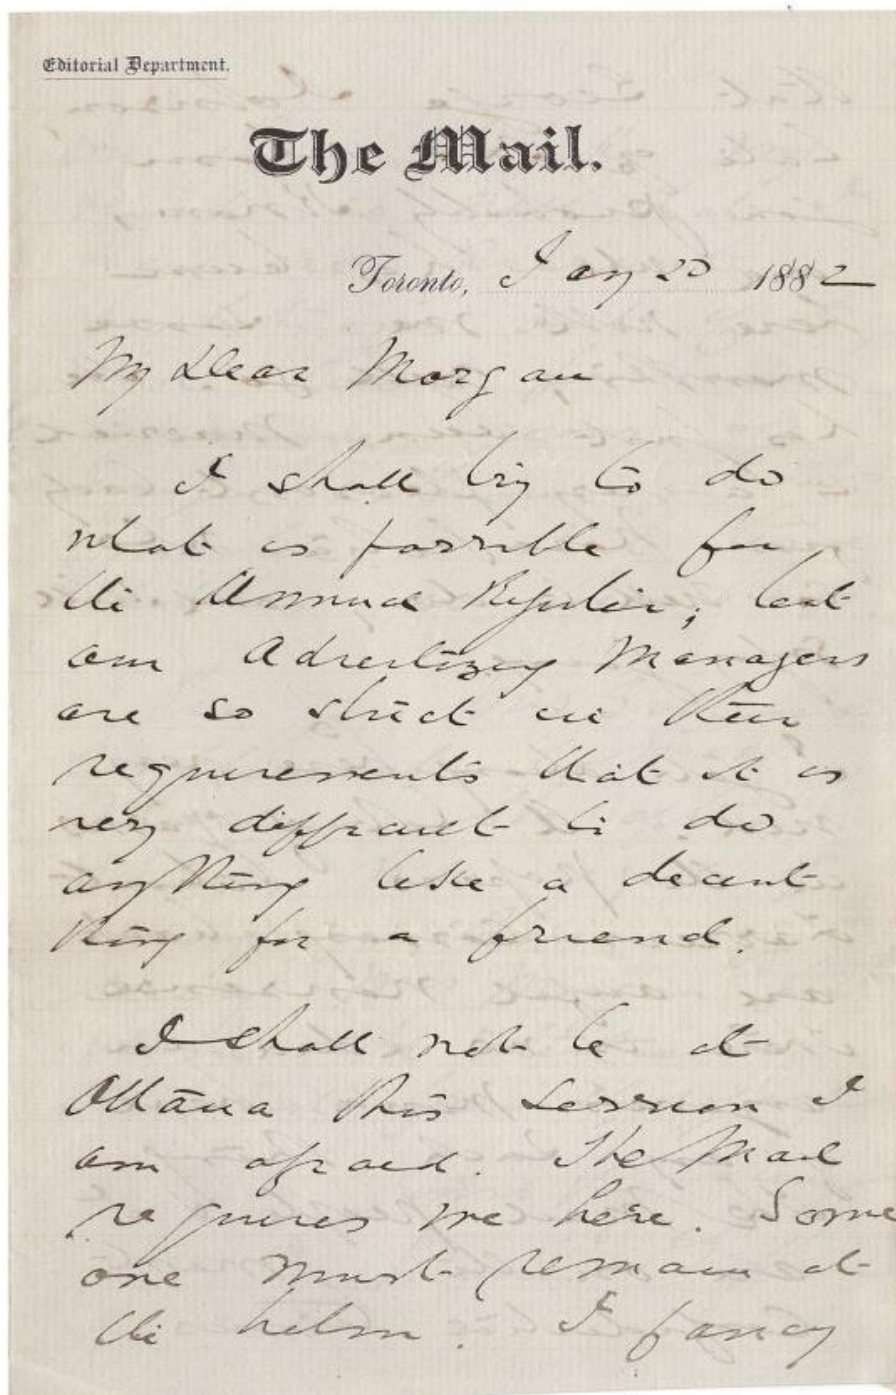 Editorial Department.
The Mail.
Toronto, Jany 20 1882
My Dear Morgan
I shall try to do
what is possible for
the Annual Register; but
our Advertizing Managers
are so strict in their
requirements that it is
very difficult to do
anything like a decent
thing for a friend.
I shall not be at
Ottawa this Session I
am afraid. The Mail
requires me here. Some
one must remain at
the helm. I fancy